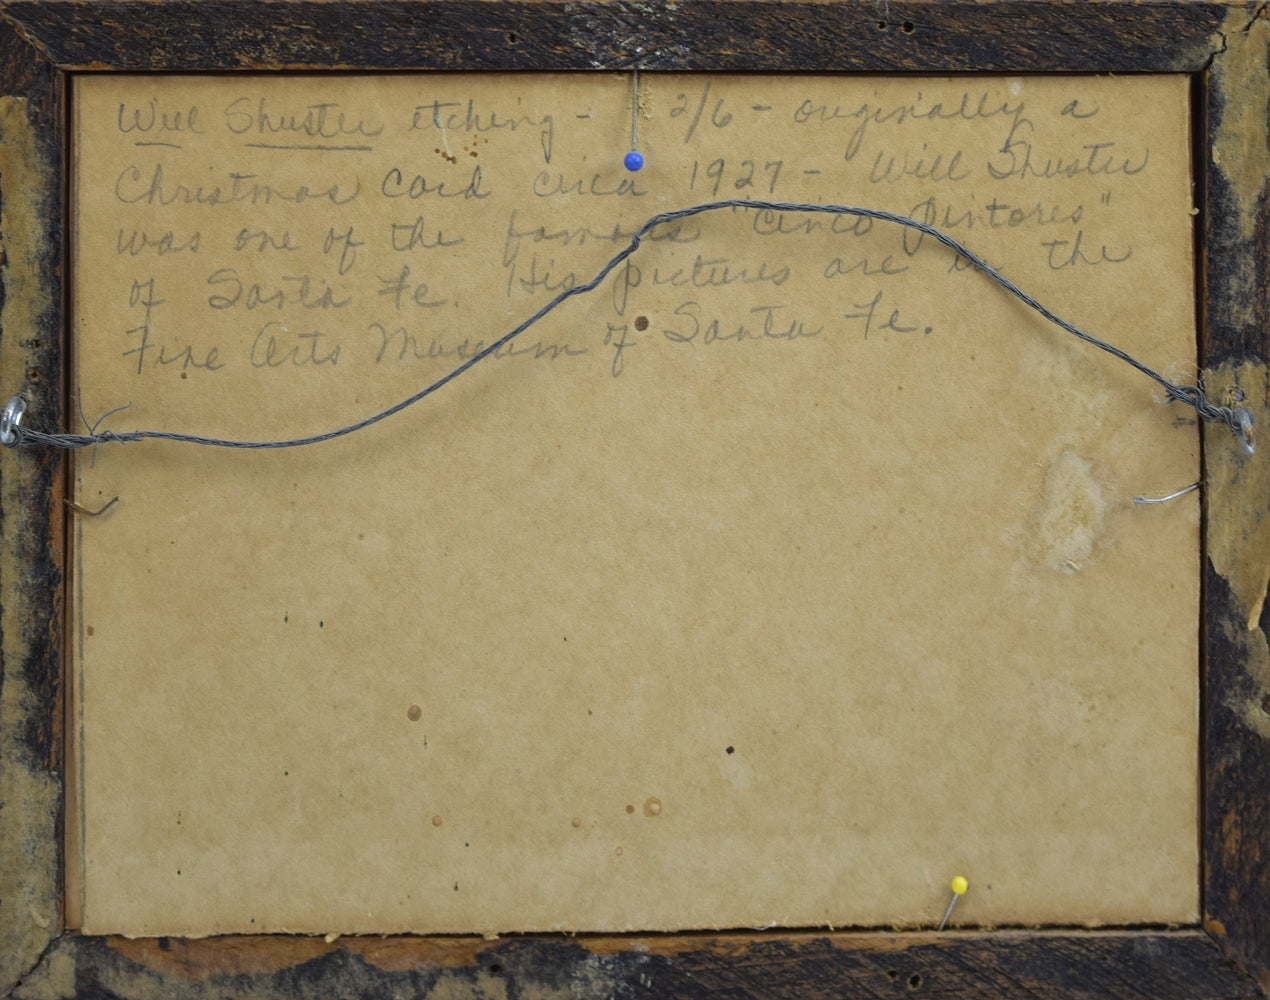 Will Shuster etching - 2/6 - originally a
Christmas card circa 1927 - Will Shuster
was one of the famous "Cinco Pintores"
of Santa Fe. His pictures are in the
Fine Arts Museum of Santa Fe.